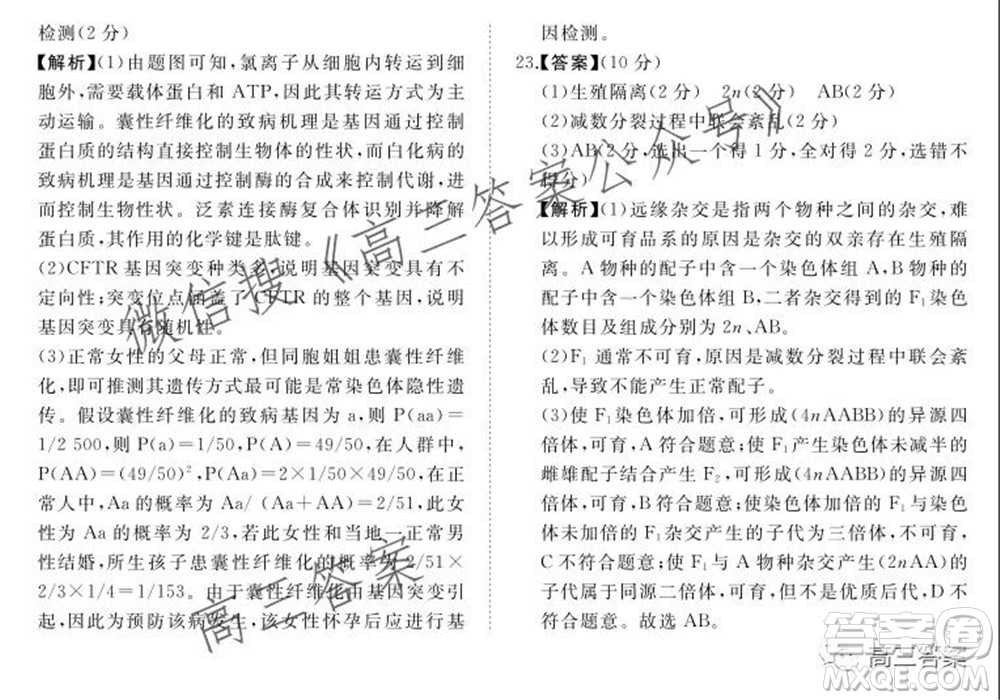 检测(2分)
【解析】(1)由题图可知，氯离子从细胞内转运到细
胞外，需要载体蛋白和 ATP，因此其转运方式为主
动运输。囊性纤维化的致病机理是基因通过控制
蛋白质的结构直接控制生物体的性状，而白化病的
致病机理是基因通过控制酶的合成来控制代谢，进
而控制生物性状。泛素连接酶复合体识别并降解
蛋白质，其作用的化学键是肽键。
(2)CFTR 基因突变种类多，说明基因突变具有不
定向性；突变位点涵盖了 CFTR 的整个基因，说明
基因突变具有随机性。
(3)正常女性的父母正常，但同胞姐姐患囊性纤维
化，即可推测其遗传方式最可能是常染色体隐性遗
传。假设囊性纤维化的致病基因为 a，则 P(aa)＝
1/2 500，则 P(a)＝1/50，P(A)＝49/50，在人群中，
P(AA)＝(49/50)²，P(Aa)＝2×1/50×49/50，在正
常人中，Aa 的概率为 Aa/(Aa＋AA)＝2/51，此女
性为 Aa 的概率为 2/3，若此女性和当地一正常男
性结婚，所生孩子患囊性纤维化的概率为 2/51×
2/3×1/4＝1/153。由于囊性纤维化由基因突变引
起，因此为预防该病发生，该女性怀孕后应进行基
因检测。
23.【答案】(10 分)
(1)生殖隔离(2 分)　2n(2 分)　AB(2 分)
(2)减数分裂过程中联会紊乱(2 分)
(3)AB(2 分，选出一个得 1 分，全对得 2 分，选错不
得分)
【解析】(1)远缘杂交是指两个物种之间的杂交，难
以形成可育品系的原因是杂交的双亲存在生殖隔
离。A 物种的配子中含一个染色体组 A，B 物种的
配子中含一个染色体组 B，二者杂交得到的 F₁ 染色
体数目及组成分别为 2n、AB。
(2)F₁ 通常不可育，原因是减数分裂过程中联会紊
乱，导致不能产生正常配子。
(3)使 F₁ 染色体加倍，可形成(4nAABB)的异源四
倍体，可育，A 符合题意；使 F₁ 产生染色体未减半的
雌雄配子结合产生 F₂，可形成(4nAABB)的异源四
倍体，可育，B 符合题意；使染色体加倍的 F₁ 与染色
体未加倍的 F₁ 杂交产生的子代为三倍体，不可育，
C 不符合题意；使 F₁ 与 A 物种杂交产生(2nAA)的
子代属于同源二倍体，可育，但不属于四倍体，D 不
符合题意。故选 AB。
微信搜《高三答案公众号》
高三答案
答案圈
高三答案